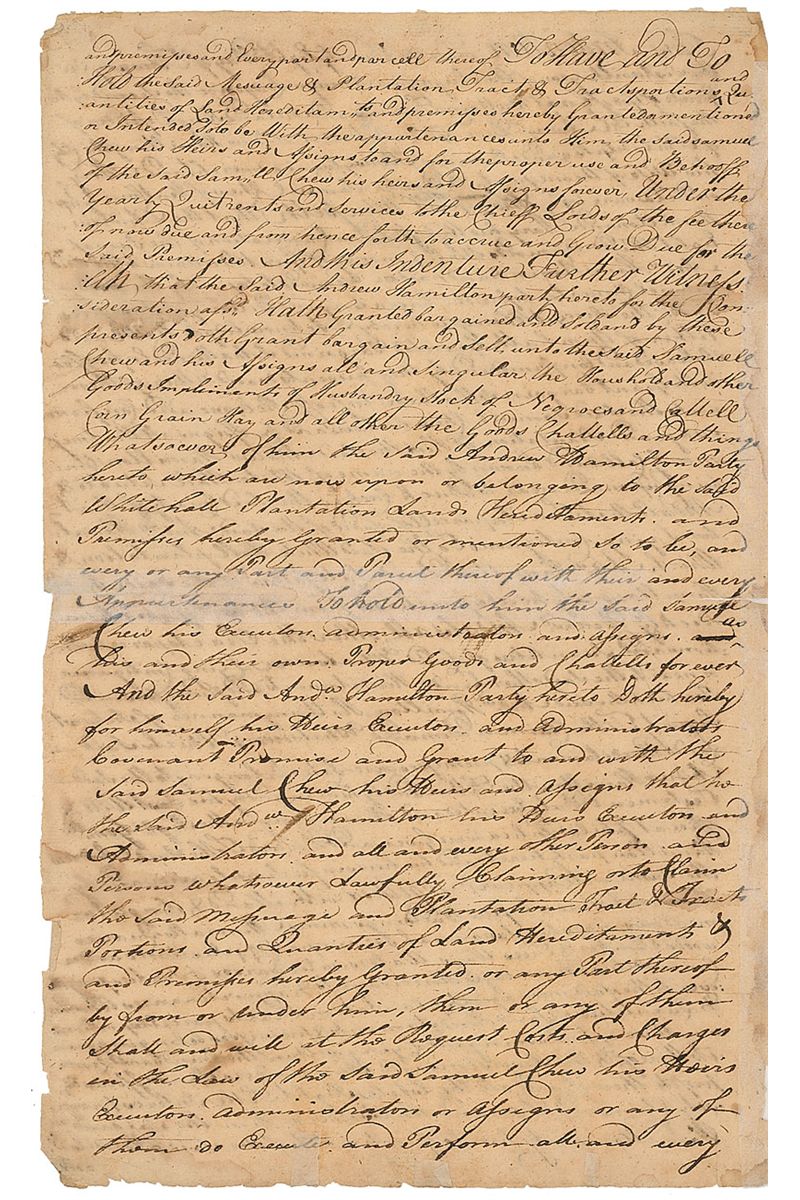 and premisses and Every part and parcell thereof To Have and To
Hold the said Mesuage & Plantation Tract & Tracts portions and Qu-
:antities of Land Hereditam:ts and premisses hereby Granted or mentioned
or Intended So to be With the appurtenances unto Him the said Samuel
Chew his Heirs and Assigns to and for the proper use and Behooff
of the said Sam:ll Chew his heirs and Assigns forever, Under the
Yearly Quitrents and Services to the Chieff Lords of the fee there
:of now due and from hence forth to accrue and Grow Due for the
Said Premisses And this Indenture Further Witness
:eth that the said Andrew Hamilton party hereto for the Con-
:sideration afsd. Hath Granted bargained and Sold and by these
presents doth Grant bargain and Sell unto the said Samuell
Chew and his Assigns all and Singular the Houshold and other
Goods Impliments of Husbandry Stock of Negroes and Cattell
Corn Grain Hay and all other the Goods Chattells and things
Whatsoever of him the said Andrew Hamilton Party
hereto which are now upon or belonging to the said
Whitehall Plantation Lands Hereditaments and
Premisses hereby Granted or mentioned so to be, and
every or any Part and Parcel thereof with their and every
Appurtenances To hold unto him the said Samuel
Chew his Executors administrators and Assigns and as
his and their own Proper Goods and Chattells for ever
And the said Andw. Hamilton Party hereto Doth hereby
for himself his Heirs Executors and Administrators
Covenant Promise and Grant to and with the
said Samuel Chew his Heirs and Assigns that he
the said Andw. Hamilton his Heirs Executors and
Administrators and all and every other Person and
Persons whatsoever Lawfully Claiming or to Claim
the said Messuage and Plantation Tract & Tracts
Portions and Quanties of Land Hereditaments &
and Premisses hereby Granted or any Part thereof
by from or under him, them or any of them
Shall and will at the Request Costs and Charges
in the Law of the said Samuel Chew his Heirs
Executors administrators or Assigns or any of
them do Execute and Perform all and every